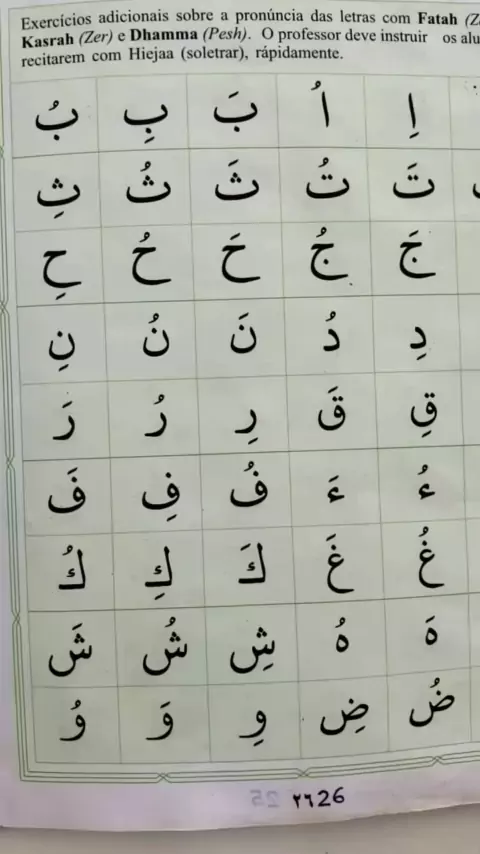 Exercícios adicionais sobre a pronúncia das letras com Fatah (Z
Kasrah (Zer) e Dhamma (Pesh). O professor deve instruir os alu
recitarem com Hiejaa (soletrar), rápidamente.
اِ اُ بَ بِ بُ
تَ تُ ثَ ثُ ثِ
جَ جُ حَ حُ حِ
دِ دُ نَ نُ نِ
قِ قَ رِ رُ رَ
ءُ ءَ فُ فِ فَ
غُ غَ كَ كِ كُ
هَ هُ شِ شُ شَ
ضُ ضِ وِ وَ وُ
٢٦26